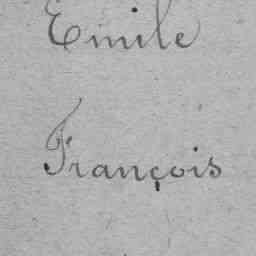 Emile
François